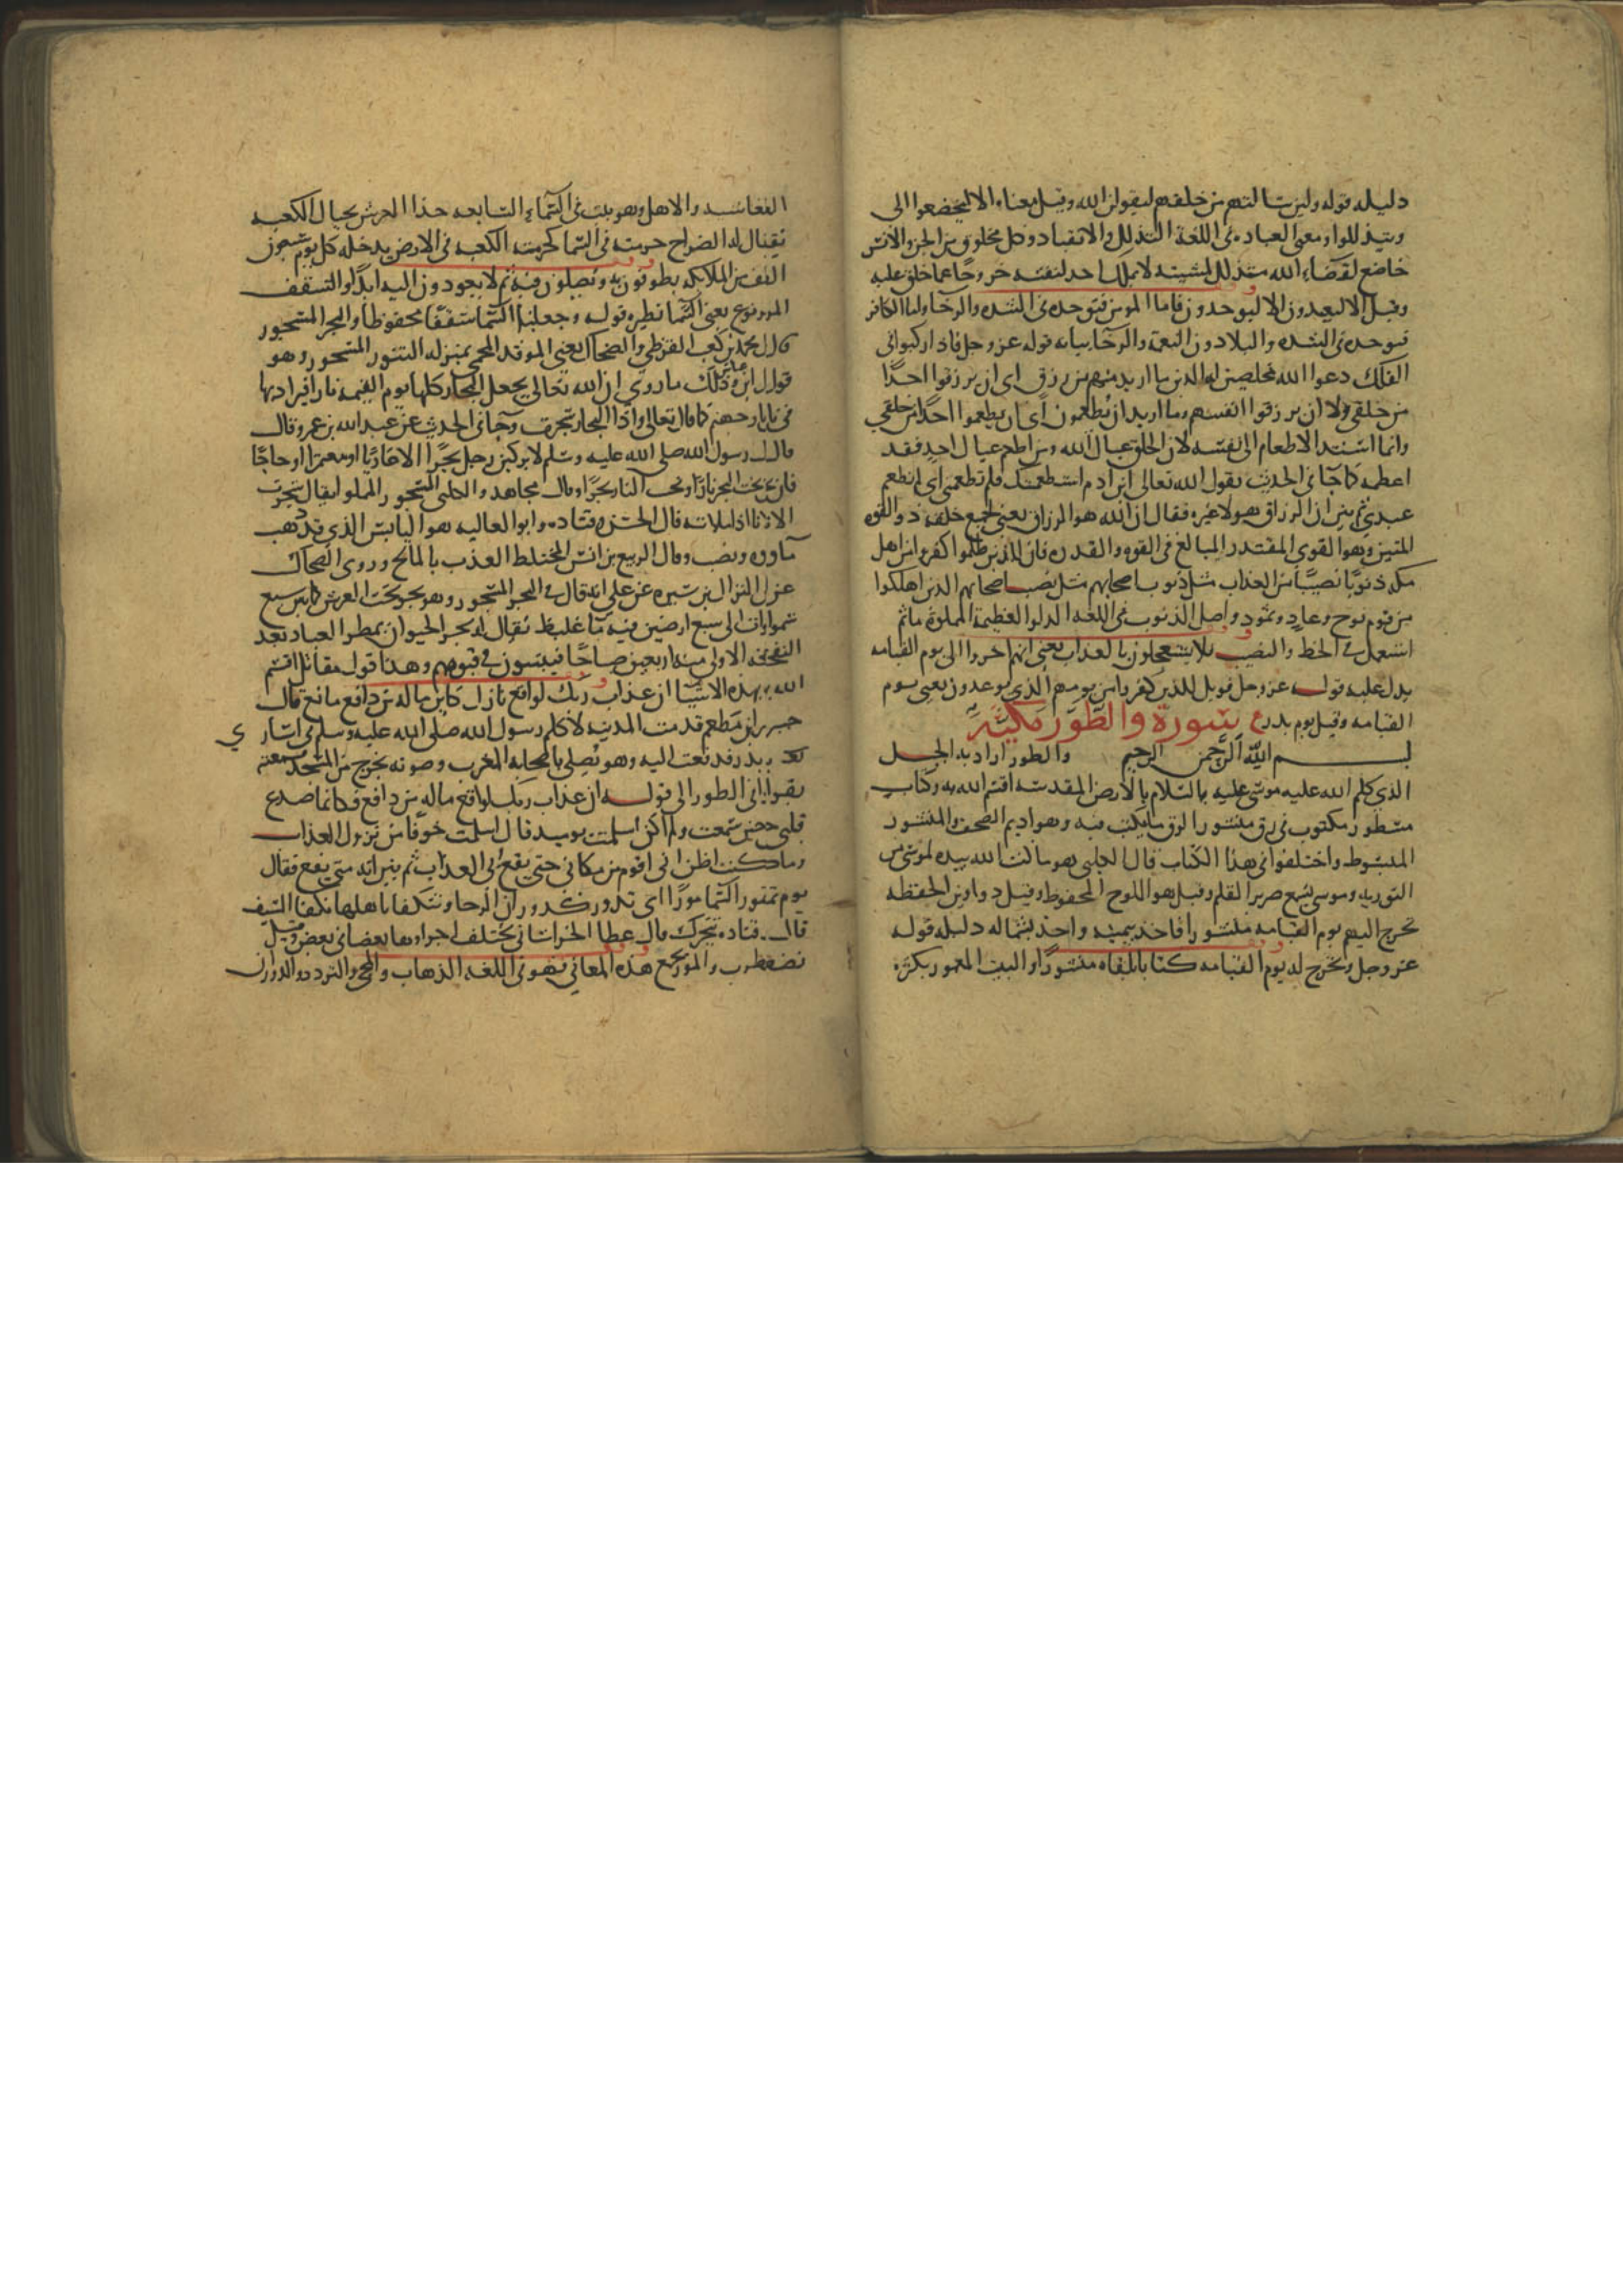 دليله قوله ولين سالتهم من خلقهم ليقولن الله وقيل معناه الا ليخضعوا الى
ويتذللوا ومعنى العباده فى اللغة التذلل والانقياد وكل مخلوق من الجن والانس
خاضع لقضاء الله متذلل لمشيته لا يملك احد لنفسه خروجا عما خلق عليه
وقيل الا ليعبدون الا ليوحدون فاما المومن فيوحده فى الشده والرخا واما الكافر
فيوحده فى الشده والبلا دون النعمة والرخا بيانه قوله عز وجل فاذا ركبوا فى
الفلك دعوا الله مخلصين له الدين ما اريد منهم من رزق اى ان يرزقوا احدا
من خلقى ولا ان يرزقوا انفسهم وما اريد ان يطعمون اى ان يطعموا احدا من خلقي
وانما اسند الاطعام الى نفسه لان الخلق عيال الله ومن اطعم عيال احد فقد
اطعمه كما جا فى الحديث يقول الله تعالى ابن ادم استطعمتك فلم تطعمنى اى لم تطعم
عبدي ثم بين ان الرزاق هو لا غيره فقال ان الله هو الرزاق يعنى لجميع خلقه ذو القوه
المتين وهو القوى المقتدر المبالغ فى القوه والقدره فان للذين ظلموا كفروا من اهل
مكه ذنوبا نصيبا من العذاب مثل ذنوب اصحابهم مثل نصيب اصحابهم الذين اهلكوا
من قوم نوح وعاد وثمود واصل الذنوب فى اللغه الدلو العظيمة المملوة ماثم
استعمل فى الحظ والنصيب فلا يستعجلون بالعذاب يعنى انهم اخروا الى يوم القيامه
يدل عليه قوله عز وجل فويل للذين كفروا من يومهم الذي يوعدون يعنى يوم
القيامه وقيل يوم بدر سورة والطور مكية
بسم الله الرحمن الرحيم والطور اراد به الجبل
الذي كلم الله عليه موسى عليه السلام بالارض المقدسه اقسم الله به وكتاب
مسطور مكتوب فى رق منشور الرق ما يكتب فيه وهو اديم الصحف والمنشور
المبسوط واختلفوا فى هذا الكتاب قال الكلبى هو ما كتب الله بيده لموسى من
التوريه وموسى يسمع صرير القلم وقيل هو اللوح المحفوظ وقيل دواوين الحفظه
تخرج اليهم يوم القيامه منشورا فاخذ بيمينه واخذ بشماله دليله قوله
عز وجل ونخرج له يوم القيامه كتابا يلقاه منشورا والبيت المعمور بكثرة
الغاشيه والاهل وهو بيت فى السماء السابعه حذا العرش بحيال الكعبه
يقال له الضراح حرمته فى السما كحرمة الكعبه فى الارض يدخله كل يوم سبعون
الف من الملايكه يطوفون به ويصلون فيه ثم لا يعودون اليه ابدا والسقف
المرفوع يعنى السما نظيره قوله وجعلنا السما سقفا محفوظا والبحر المسجور
قال محمد بن كعب القرظي والضحاك يعنى الموقد المحمى بمنزله التنور المسجور وهو
قول ابن عباس وذلك ما روي ان الله تعالى يجعل البحار كلها يوم القيمه نارا فيزاد بها
فى نار جهنم كما قال تعالى واذا البحار سجرت وجا فى الحديث عن عبد الله بن عمرو قال
قال رسول الله صلى الله عليه وسلم لا يركبن رجل بحرا الا غازيا او معتمرا او حاجا
فان تحت البحر نارا وتحت النار بحرا وقال مجاهد والكلبى المسجور المملو يقال سجرت
الانا اذا ملاته قال الحسن وقتاده وابو العاليه هو اليابس الذى قد ذهب
ماوه ونضب وقال الربيع بن انس المختلط العذب بالمالح وروى الضحاك
عن النزال بن سبره عن على انه قال فى البحر المسجور وهو بحر تحت العرش كما بين سبع
سموات الى سبع ارضين فيه ما غليظ يقال له بحر الحيوان يمطر العباد بعد
النفخه الاولى منه اربعين صباحا فينبتون فى قبورهم وهذا قول مقاتل اقسم
الله بهذه الاشيا ان عذاب ربك لواقع نازل كاين ما له من دافع مانع قال
جبير بن مطعم قدمت المدينه لاكلم رسول الله صلى الله عليه وسلم فى اسارى
بدر فدفعت اليه وهو يصلى باصحابه المغرب وصوته يخرج من المسجد فسمعته
يقرا والطور الى قوله ان عذاب ربك لواقع ما له من دافع فكانما صدع
قلبى حين سمعت ولم اكن اسلمت يوميد قال اسلمت خوفا من نزول العذاب
وما كنت اظن انى اقوم من مكانى حتى يقع بى العذاب ثم بين انه متى يقع فقال
يوم تمور السما مورا اى تدور كدوران الرحا وتتكفا باهلها تكفا السفينه
قال قتاده تتحرك قال عطا الخراسانى تختلف اجزاوها بعضها فى بعض وقيل
تضطرب والمور يجمع هذه المعانى فهو فى اللغه الذهاب والمجى والتردد والدوران